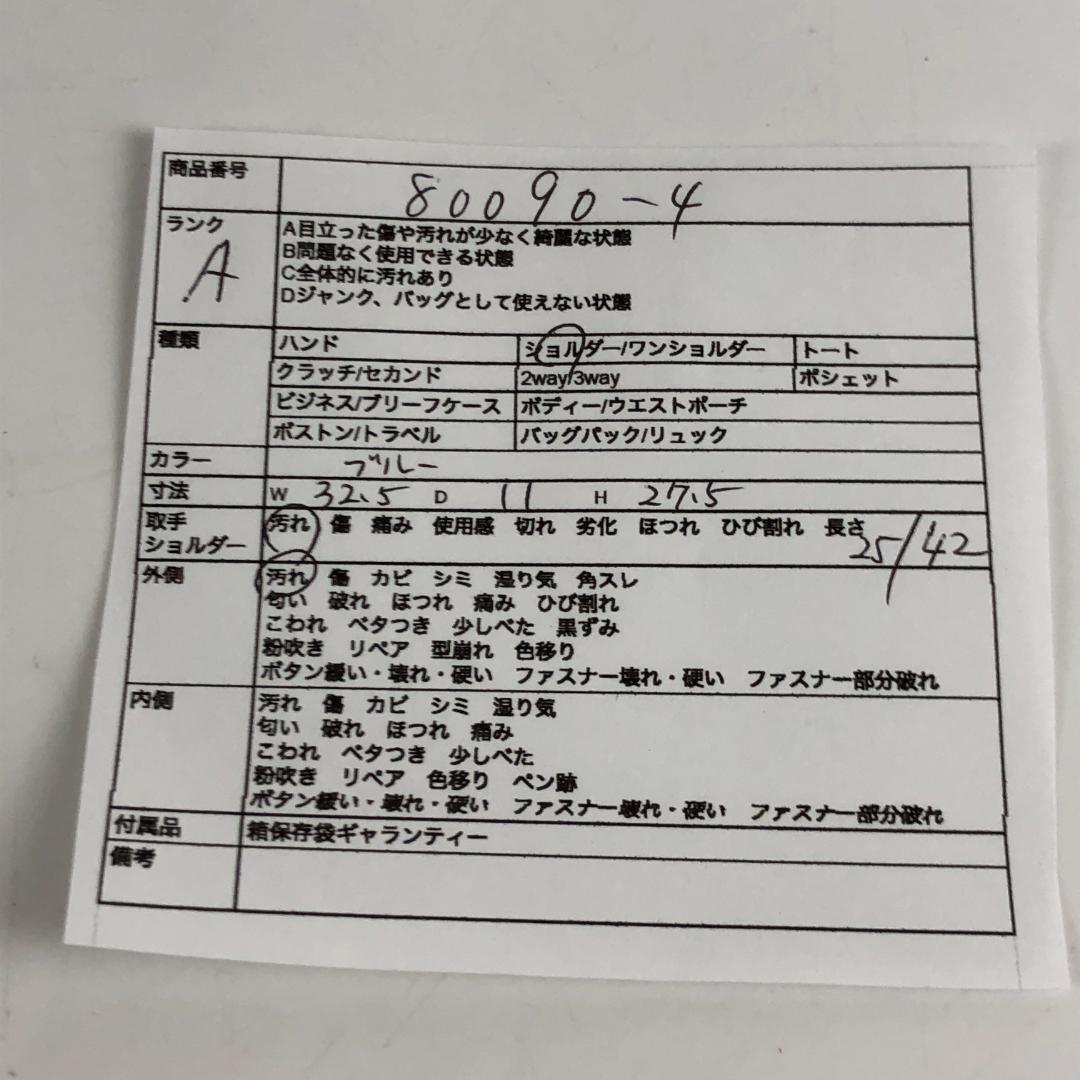 商品番号 80090-4
ランク A
A目立った傷や汚れが少なく綺麗な状態
B問題なく使用できる状態
C全体的に汚れあり
Dジャンク、バッグとして使えない状態
種類 ハンド ショルダー/ワンショルダー トート
クラッチ/セカンド 2way/3way ポシェット
ビジネス/ブリーフケース ボディー/ウエストポーチ
ボストン/トラベル バッグパック/リュック
カラー ブルー
寸法 W 32.5 D 11 H 27.5
取手 汚れ 傷 痛み 使用感 切れ 劣化 ほつれ ひび割れ 長さ
ショルダー 25/42
外側 汚れ 傷 カビ シミ 湿り気 角スレ
匂い 破れ ほつれ 痛み ひび割れ
こわれ ベタつき 少しべた 黒ずみ
粉吹き リペア 型崩れ 色移り
ボタン緩い・壊れ・硬い ファスナー壊れ・硬い ファスナー部分破れ
内側 汚れ 傷 カビ シミ 湿り気
匂い 破れ ほつれ 痛み
こわれ ベタつき 少しべた
粉吹き リペア 色移り ペン跡
ボタン緩い・壊れ・硬い ファスナー壊れ・硬い ファスナー部分破れ
付属品 箱保存袋ギャランティー
備考